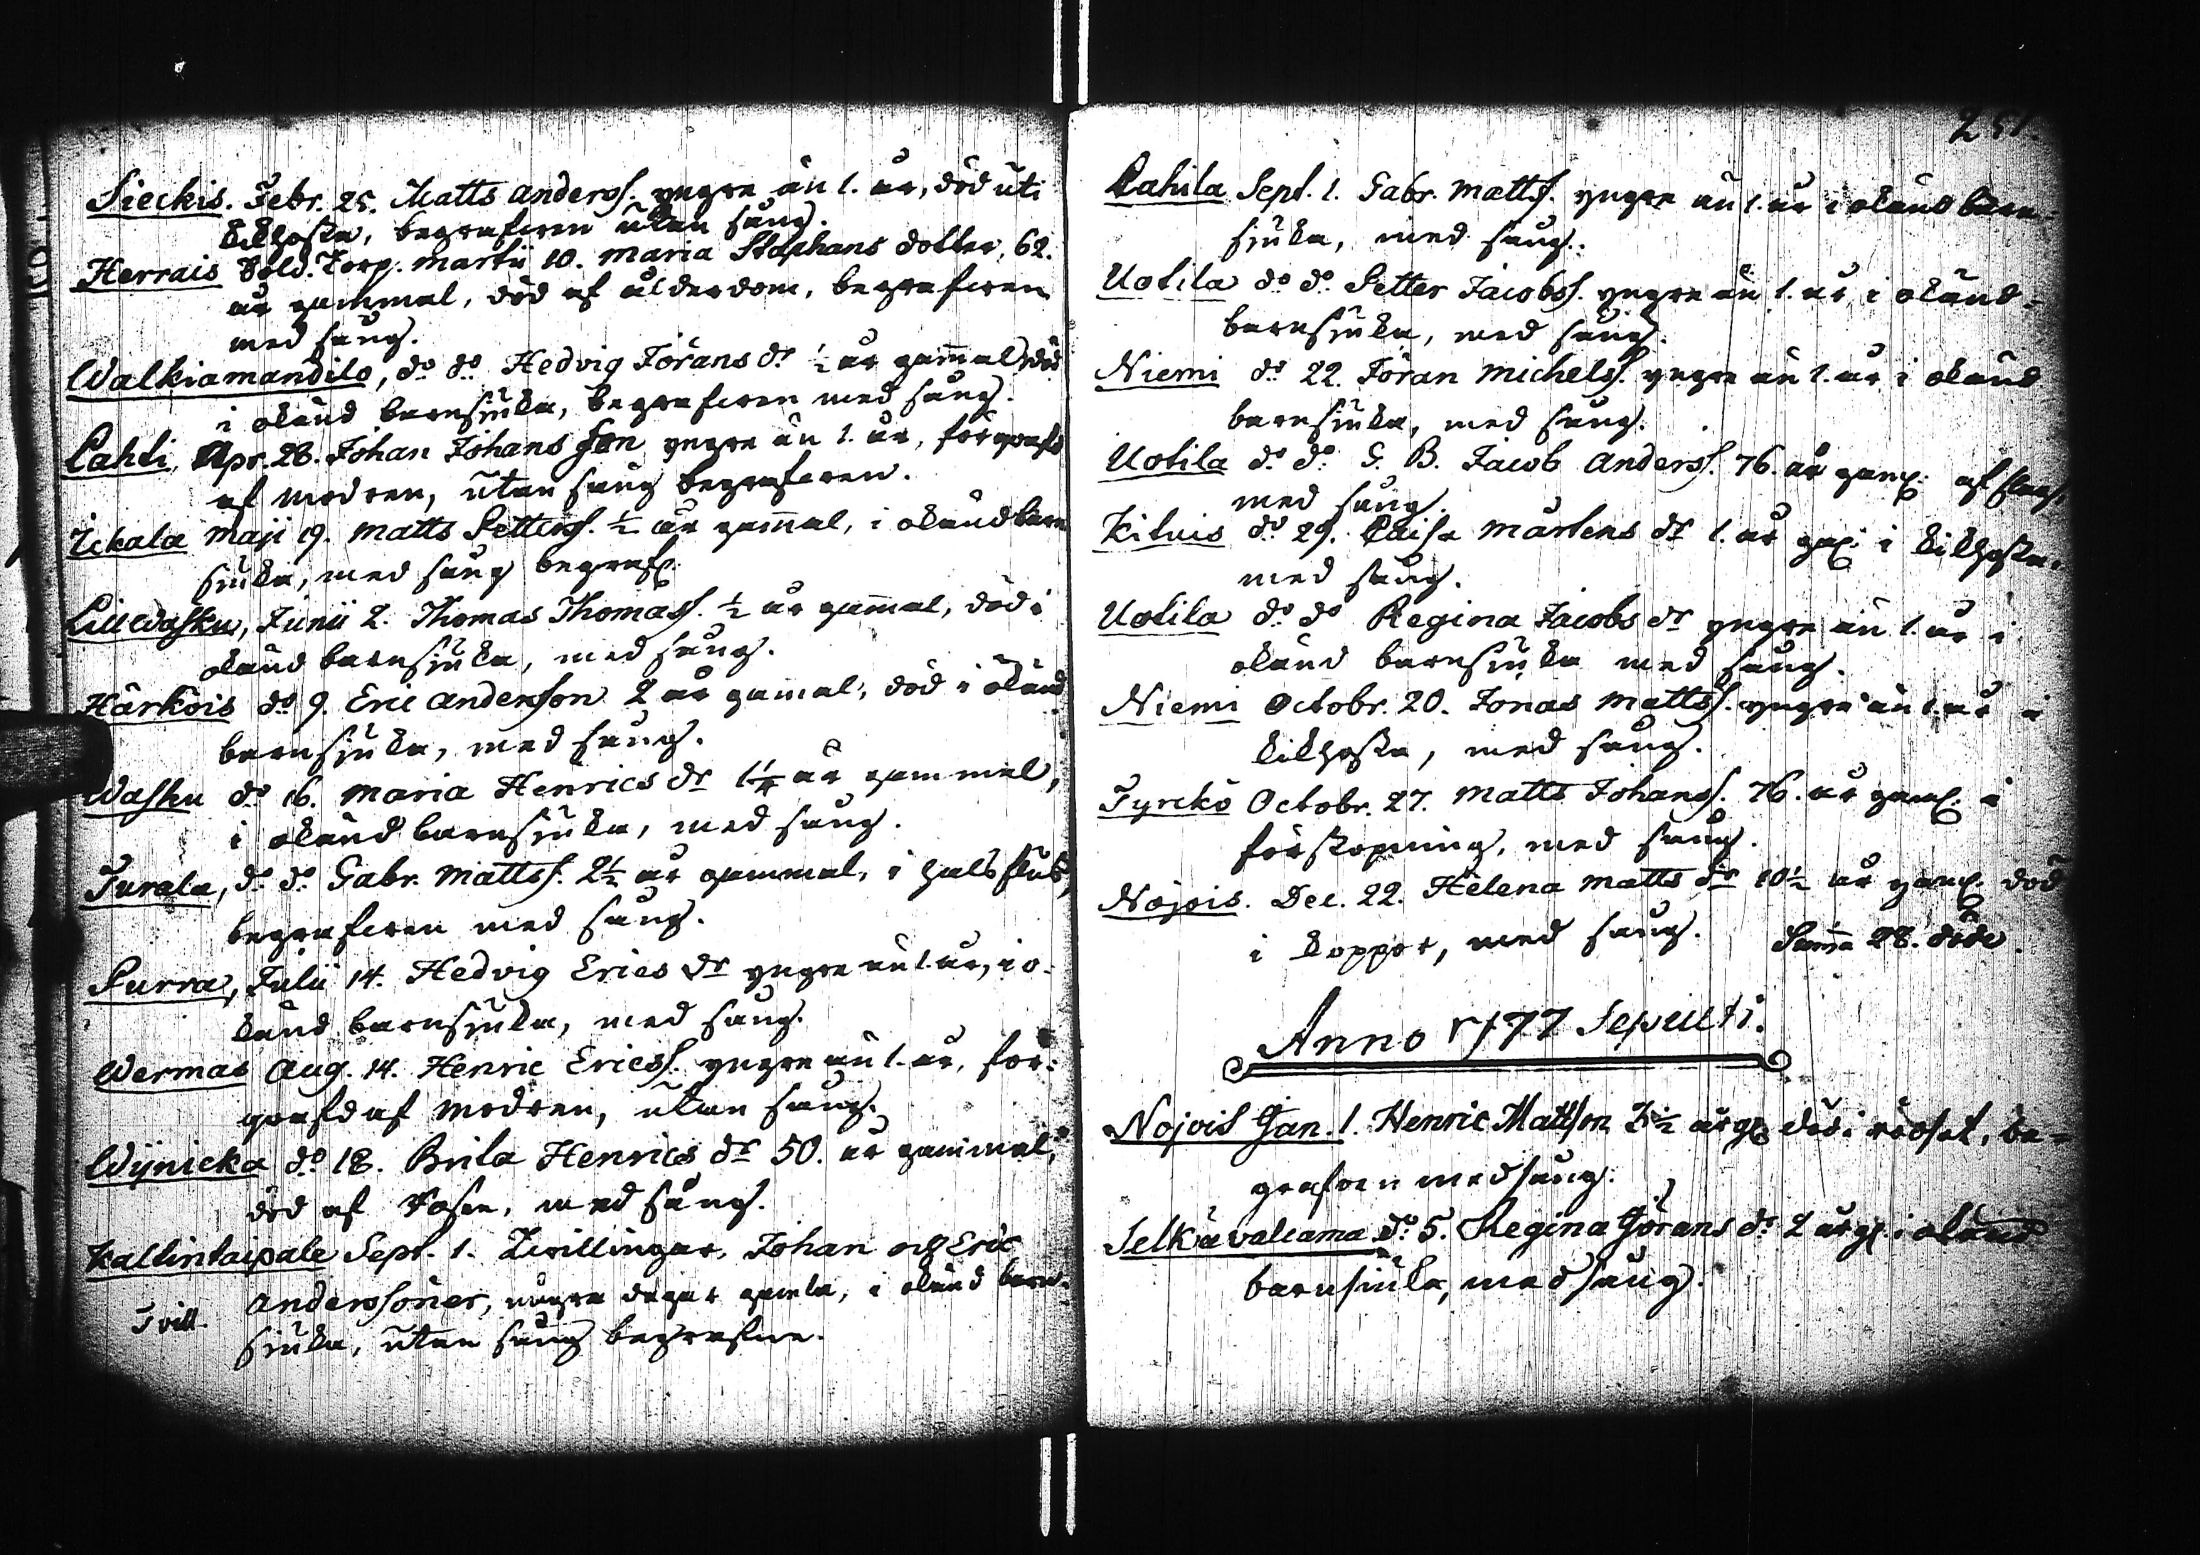 Sieckis. Febr. 25. Matts anderss. yngre än 1. år, död uti
kikhosta, begrafwen utan sång.
Herrais Sold. Torp. martii 10. maria Staphans dotter, 62.
år gammal, död af ålderdom, begrafwen
med sång.
Walkiamandilo, do do Hedvig Jörans dr ½ år gammal, död
i okänd barnsjuka, begrafwen med sång.
Lahti, Apr. 28. Johan Johans son yngre än 1. år, förqvafd
af modren, utan sång begrafwen.
Ickala maji 19. matts Petterss. ½ år gammal, i okänd barn
sjuka, med sång begrafn.
Lill Wasku, Junii 2. Thomas Thomass. ½ år gammal, död i
okänd barnsjuka, med sång.
Härköis do 9. Eric anderson 2 år gammal, död i okänd
barnsjuka, med sång.
Wasku do 16. maria Henrics dr 1¼ år gammal,
i okänd barnsjuka, med sång.
Turala, do do Gabr. mattss. 2½ år gammal, i halsfluss,
begrafwen med sång.
Purra, Julii 14. Hedvig Erics dr yngre än 1. år, i o-
känd barnsjuka, med sång.
Wermas Aug. 14. Henric Ericss. yngre än 1. år, för-
qvafd af modren, utan sång.
Wijnicka do 18. Brita Henrics dr 50. år gammal,
död af Rosen, med sång.
Kallintaipale Sept. 1. Twillingar, Johan och Eric
Tvill. anderssöner, några dagar gamla, i okänd barn-
sjuka, utan sång begrafne.
251.
Lahila Sept. 1. Gabr. mattss. yngre än 1. år i okänd barn-
sjuka, med sång.
Uotila do do Petter Jacobss. yngre än 1. år, i okänd-
barnsjuka, med sång.
Niemi do 22. Jöran michelss. yngre än 1. år i okänd
barnsjuka, med sång.
Uotila do do G. B. Jacob anderss. 76. år gaml. af slag,
med sång.
Kiluis do 29. Caisa mårtens dr 1. år gaml. i kikhosta,
med sång.
Uotila do do Regina Jacobs dr yngre än 1. år i
okänd barnsjuka med sång.
Niemi Octobr. 20. Jonas mattss. yngre än 1. år i
kikhosta, med sång.
Tyrckö Octobr. 27. matts Johanss. 76. år gaml. i
förstopning, med sång.
Nojois. Dec. 22. Helena matts dr 10½ år gaml. död
i koppor, med sång. Summa 28. döde.
Anno 1777 Sepulti.
Nojois Jan. 1. Henric Mattson ½ år gl. död i rödsot, be-
grafwen med sång.
Selkävalcama do 5. Regina Görans dr 2 år gl. i okänd
barnsiuka, med sång.